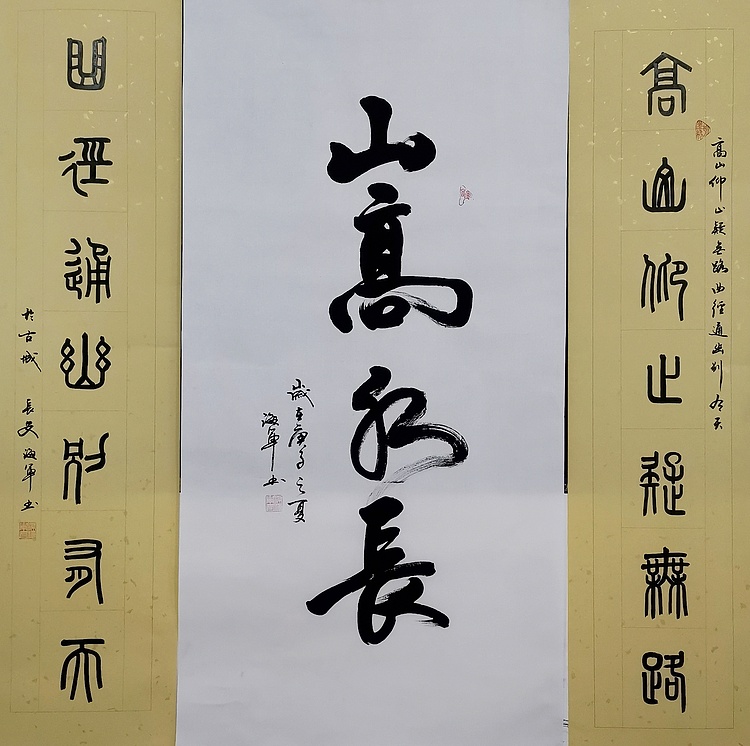 高山仰止疑無路曲徑通幽别有天
高山仰止疑無路
山高水長
歲在庚子之夏
海軍书
曲徑通幽别有天
於古城 長安海軍书